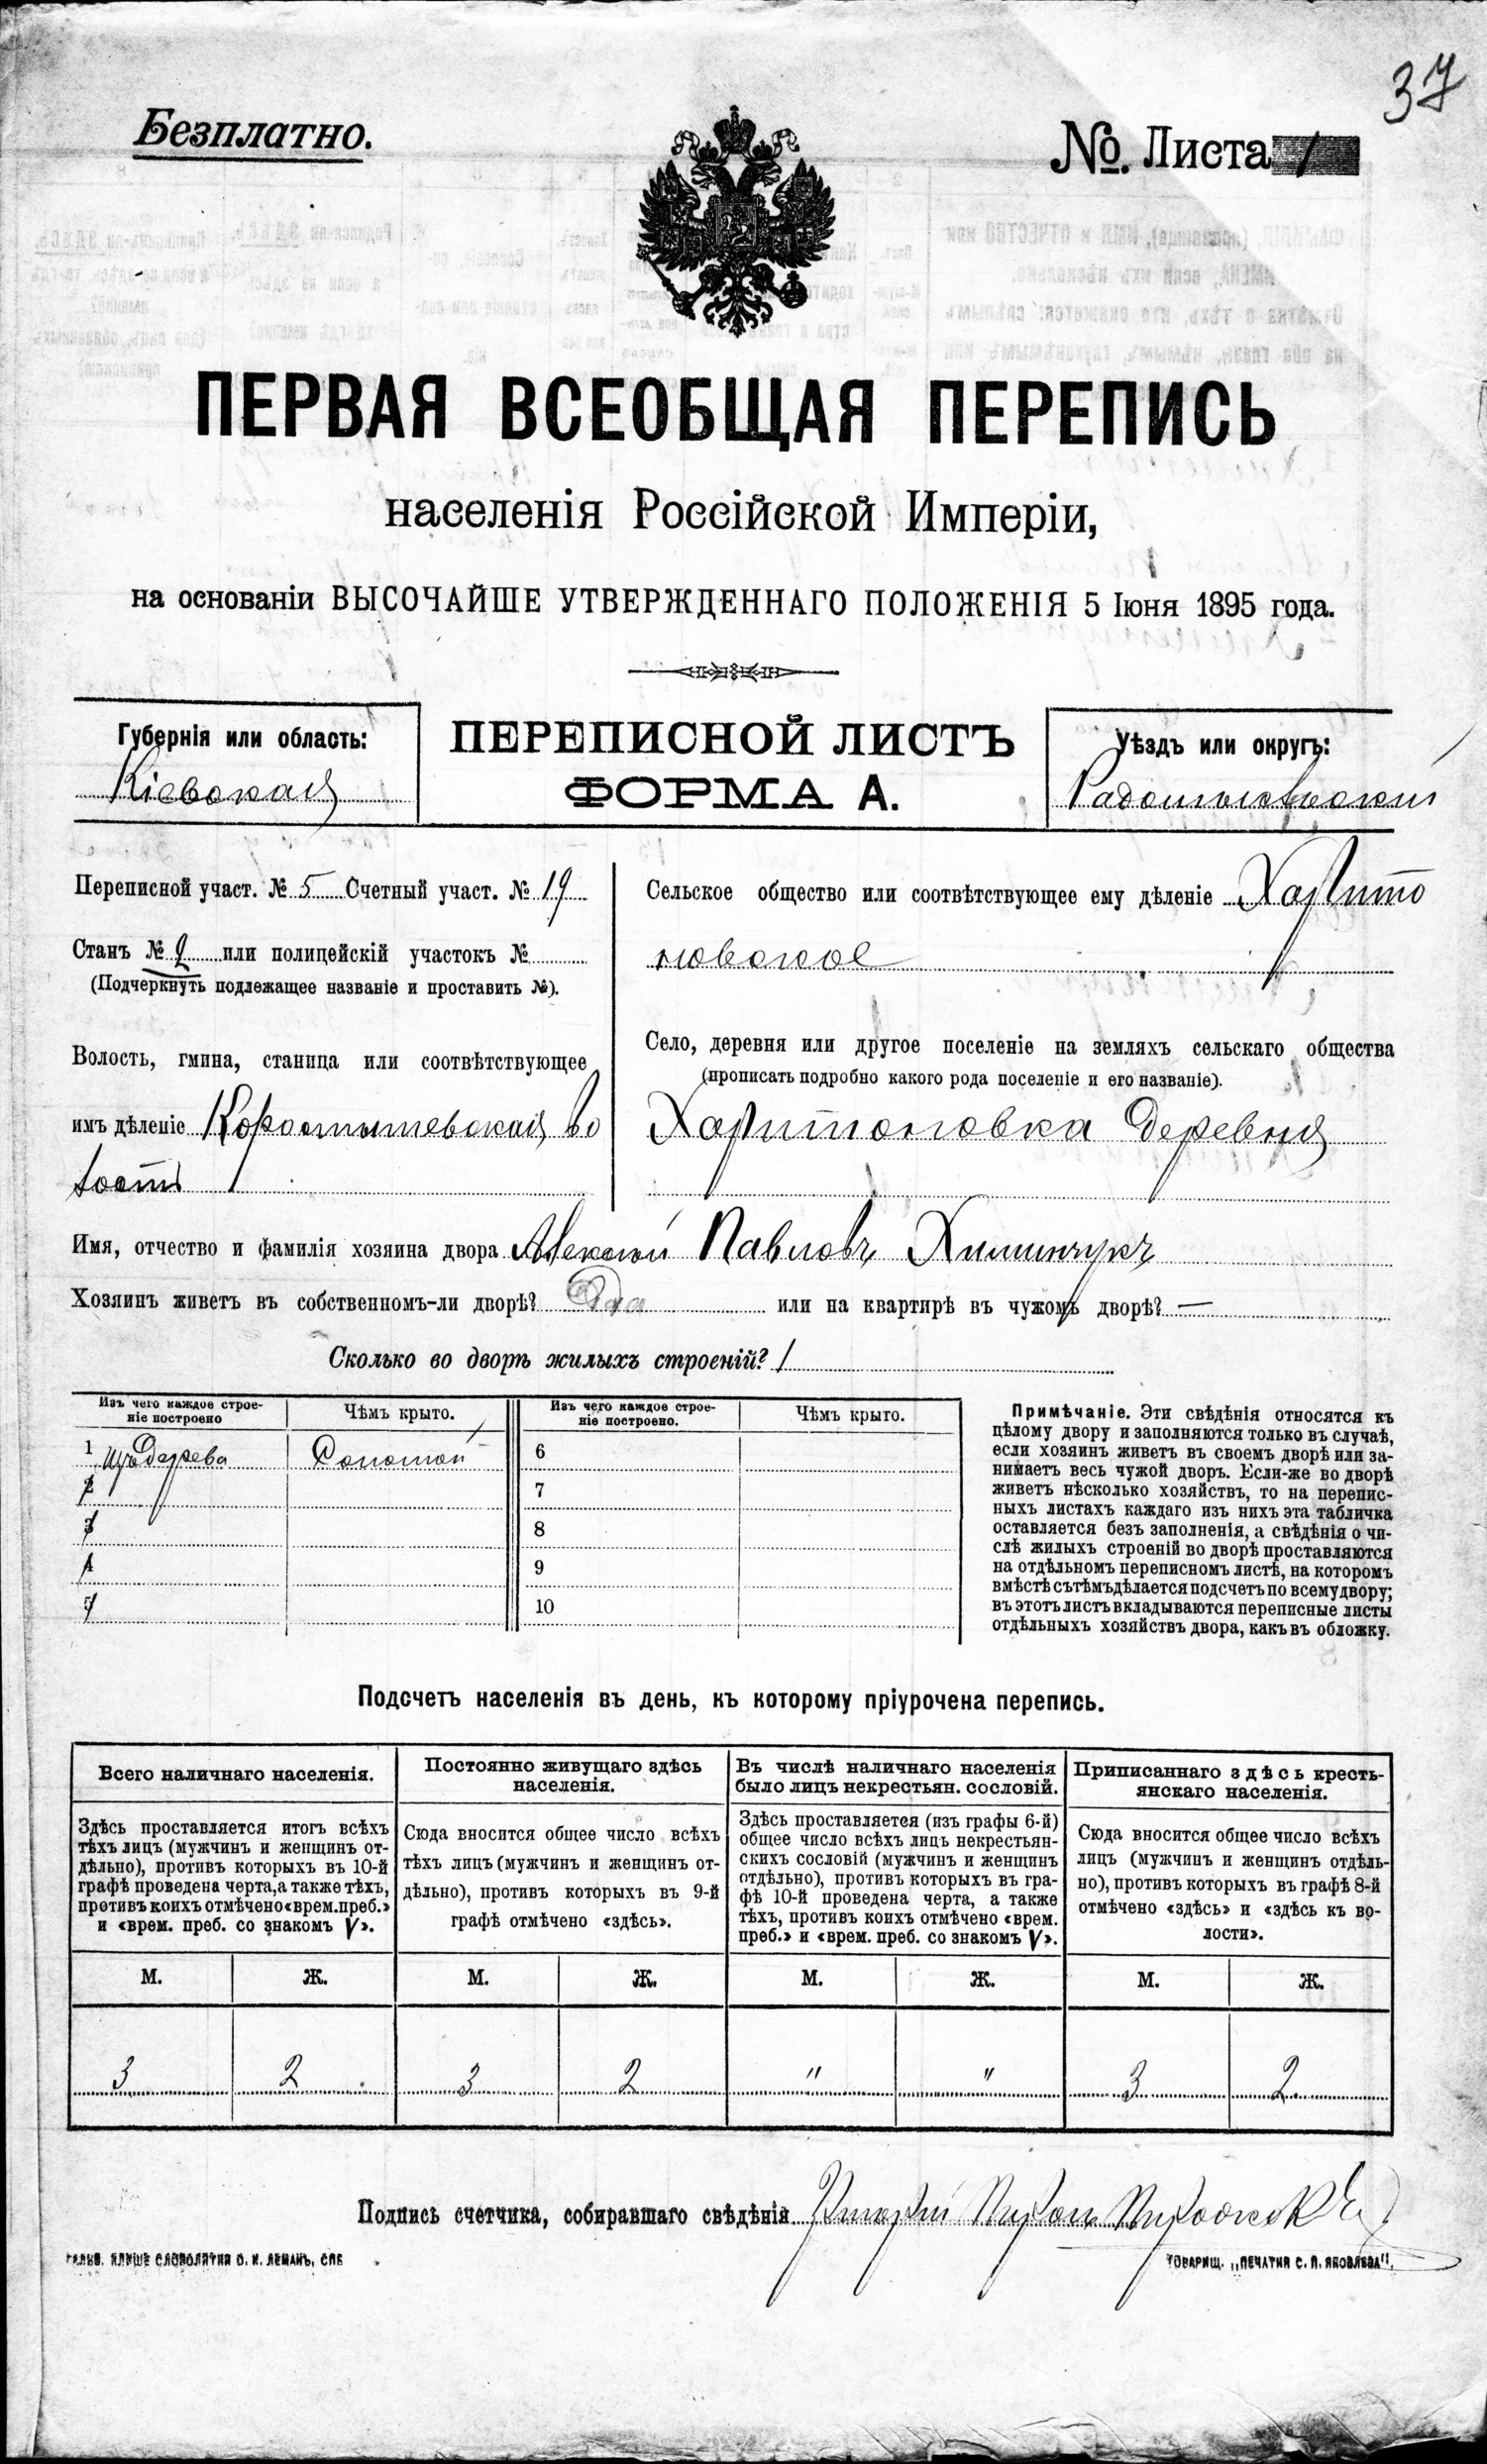 37
Безплатно.
№. Листа 1
ПЕРВАЯ ВСЕОБЩАЯ ПЕРЕПИСЬ
населенія Россійской Имперіи,
на основаніи ВЫСОЧАЙШЕ УТВЕРЖДЕННАГО ПОЛОЖЕНІЯ 5 Іюня 1895 года.
Губернія или область:
Кіевская
ПЕРЕПИСНОЙ ЛИСТЪ
ФОРМА А.
Уѣздъ или округъ:
Радомысльскій
Переписной участ. № 5 Счетный участ. № 19
Станъ № 2 или полицейскій участокъ №
(Подчеркнуть подлежащее названіе и проставить №).
Волость, гмина, станица или соотвѣтствующее
имъ дѣленіе Коростышевская во
лость
Сельское общество или соотвѣтствующее ему дѣленіе Харито
новское
Село, деревня или другое поселеніе на земляхъ сельскаго общества
(прописать подробно какого рода поселеніе и его названіе).
Харитоновка деревня
Имя, отчество и фамилія хозяина двора Алексѣй Павловъ Химинчукъ
Хозяинъ живетъ въ собственномъ-ли дворѣ? Да или на квартирѣ въ чужомъ дворѣ? —
Сколько во дворѣ жилыхъ строеній? 1
Изъ чего каждое строе-
ніе построено
Чѣмъ крыто.
1 изъ дерева Соломой
2
3
4
5
Изъ чего каждое строе-
ніе построено.
Чѣмъ крыто.
6
7
8
9
10
Примѣчаніе. Эти свѣдѣнія относятся къ
цѣлому двору и заполняются только въ случаѣ,
если хозяинъ живетъ въ своемъ дворѣ или за-
нимаетъ весь чужой дворъ. Если-же во дворѣ
живетъ нѣсколько хозяйствъ, то на перепис-
ныхъ листахъ каждаго изъ нихъ эта табличка
оставляется безъ заполненія, а свѣдѣнія о чи-
слѣ жилыхъ строеній во дворѣ проставляются
на отдѣльномъ переписномъ листѣ, на которомъ
вмѣстѣ съ тѣмъ дѣлается подсчетъ по всему двору;
въ этотъ листъ вкладываются переписные листы
отдѣльныхъ хозяйствъ двора, какъ въ обложку.
Подсчетъ населенія въ день, къ которому пріурочена перепись.
Всего наличнаго населенія.
Здѣсь проставляется итогъ всѣхъ
тѣхъ лицъ (мужчинъ и женщинъ от-
дѣльно), противъ которыхъ въ 10-й
графѣ проведена черта, а также тѣхъ,
противъ коихъ отмѣчено «врем. преб.»
и «врем. преб. со знакомъ V».
М. Ж.
3 2
Постоянно живущаго здѣсь
населенія.
Сюда вносится общее число всѣхъ
тѣхъ лицъ (мужчинъ и женщинъ от-
дѣльно), противъ которыхъ въ 9-й
графѣ отмѣчено «здѣсь».
М. Ж.
3 2
Въ числѣ наличнаго населенія
было лицъ некрестьян. сословій.
Здѣсь проставляется (изъ графы 6-й)
общее число всѣхъ лицъ некрестьян-
скихъ сословій (мужчинъ и женщинъ
отдѣльно), противъ которыхъ въ гра-
фѣ 10-й проведена черта, а также
тѣхъ, противъ коихъ отмѣчено «врем.
преб.» и «врем. преб. со знакомъ V».
М. Ж.
" "
Приписаннаго здѣсь кресть-
янскаго населенія.
Сюда вносится общее число всѣхъ
лицъ (мужчинъ и женщинъ отдѣль-
но), противъ которыхъ въ графѣ 8-й
отмѣчено «здѣсь» и «здѣсь къ во-
лости».
М. Ж.
3 2
Подпись счетчика, собиравшаго свѣдѣнія
ГАЛЬВ. КЛИШЕ СЛОВОЛИТНИ О. И. ЛЕМАНЪ, СПБ
ТОВАРИЩ. „ПЕЧАТНЯ С. П. ЯКОВЛЕВА".